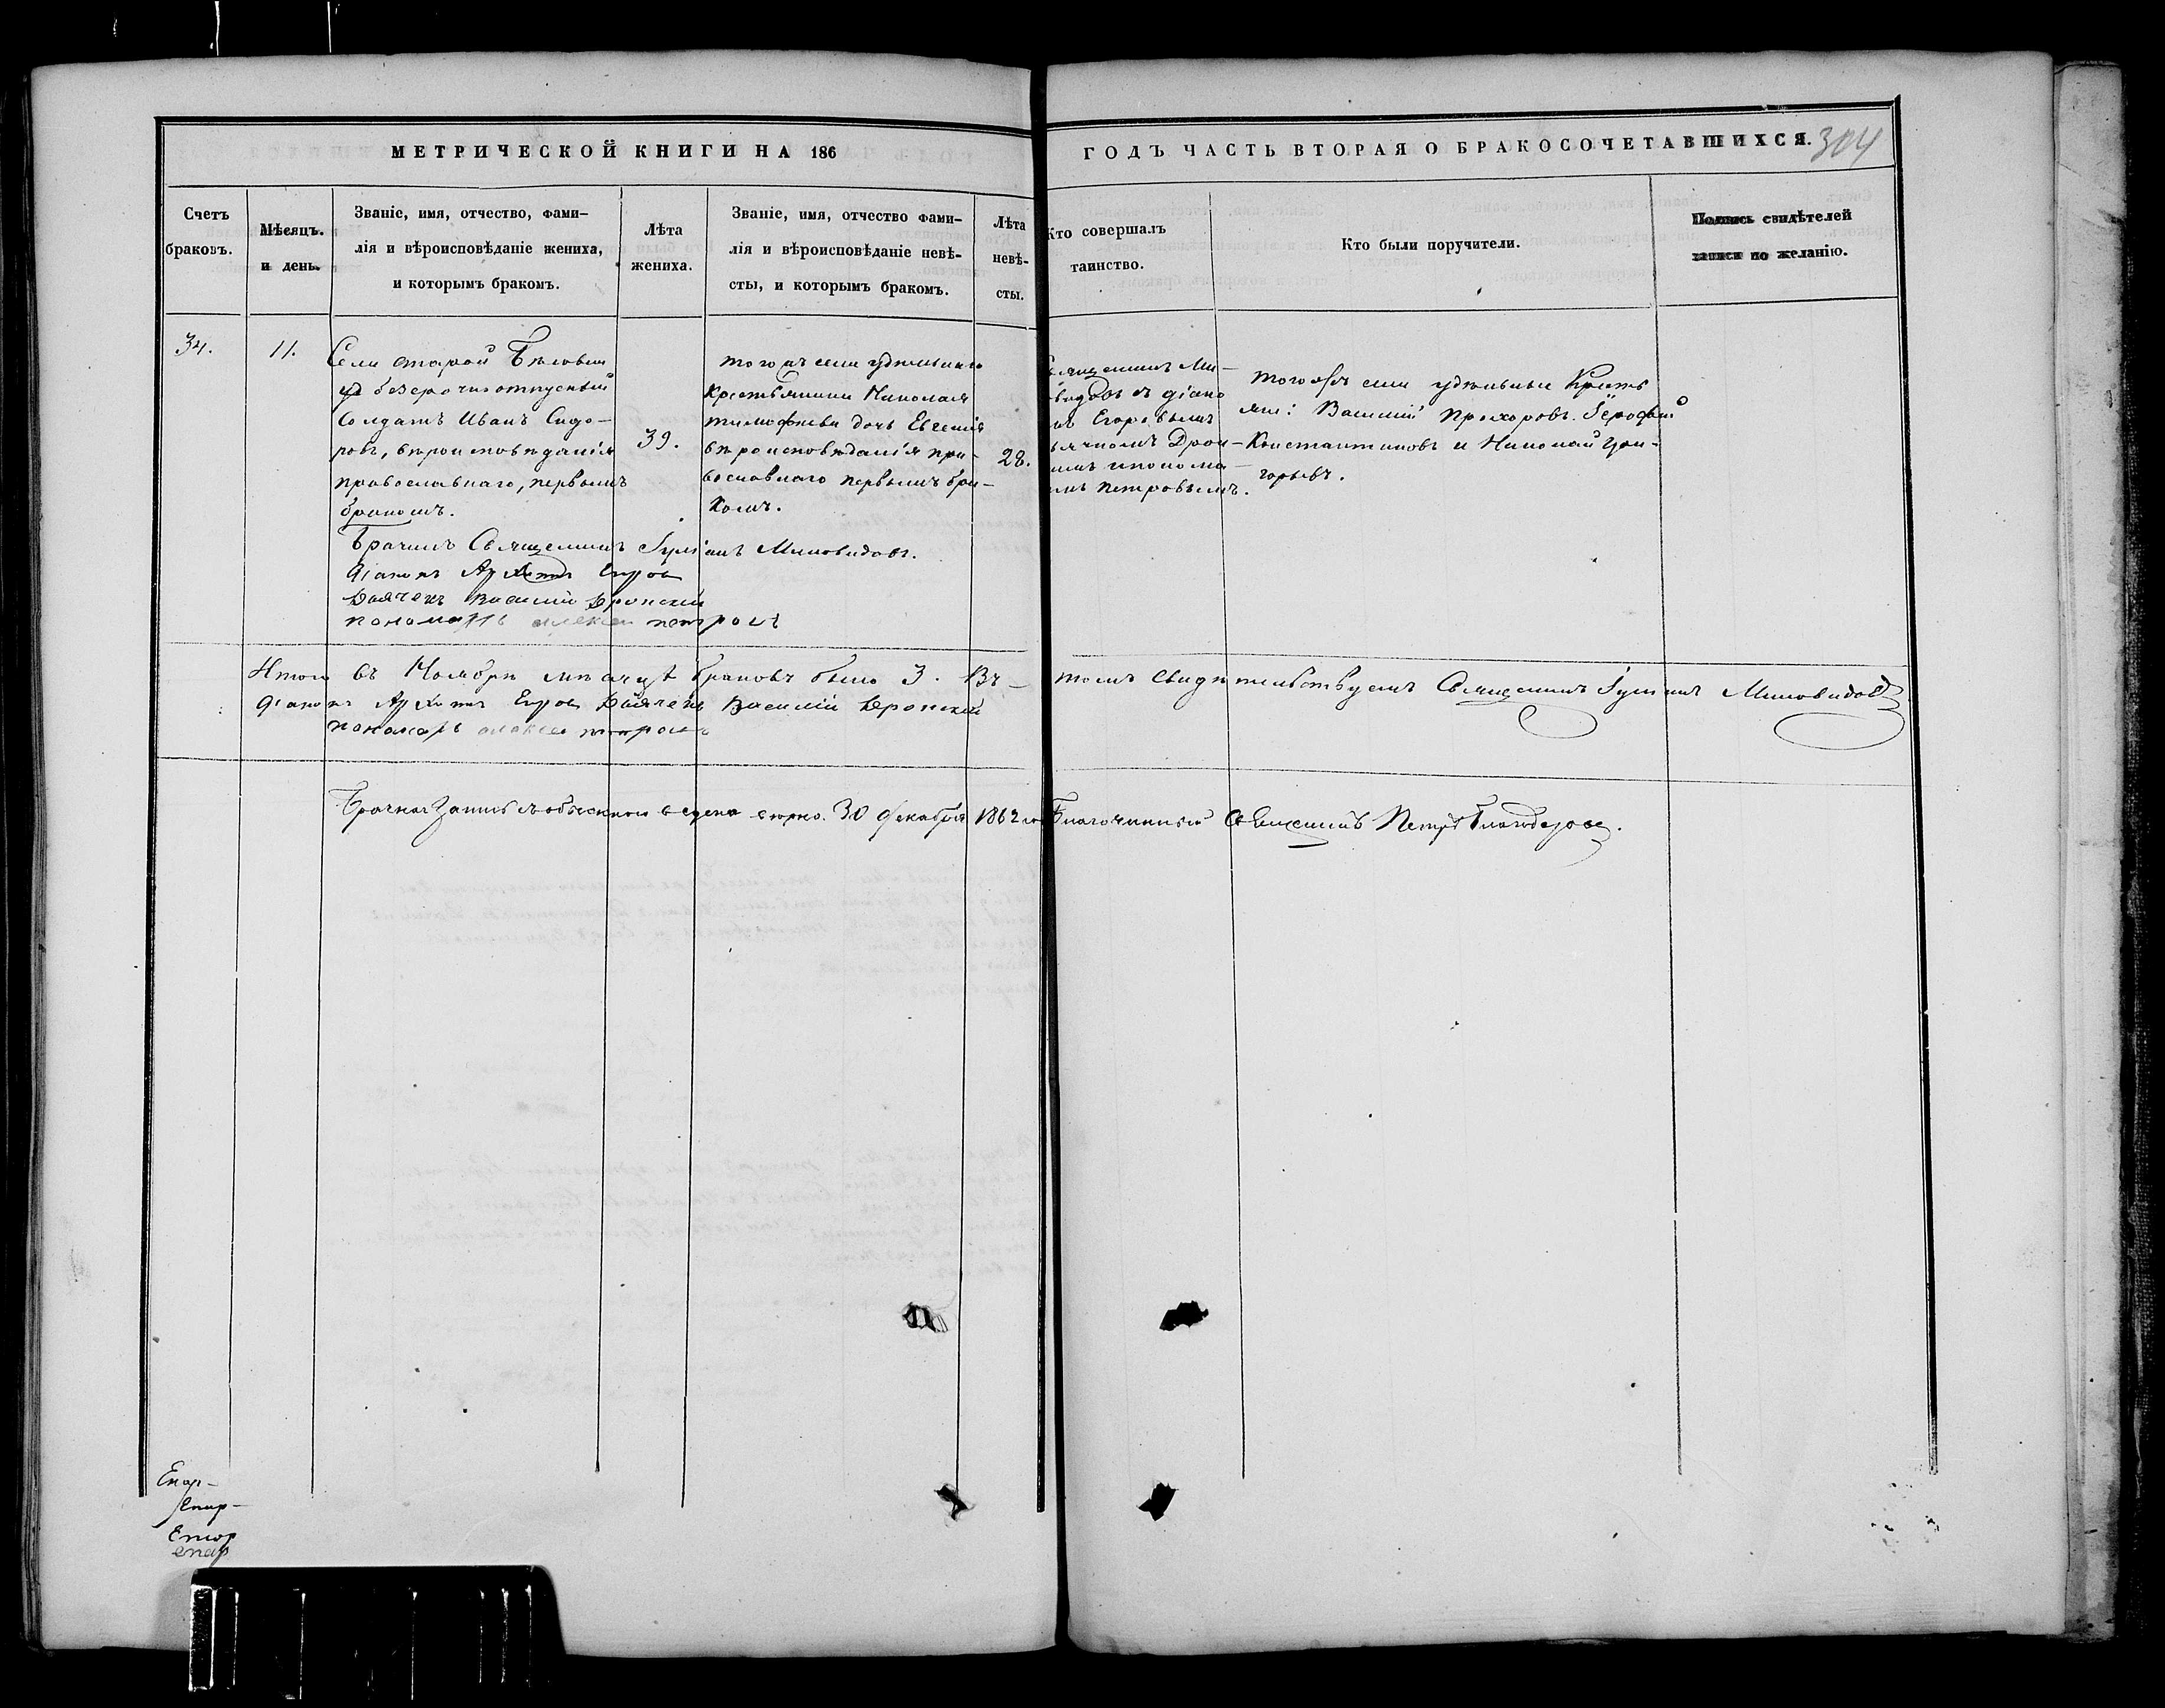 МЕТРИЧЕСКОЙ КНИГИ НА 186
ГОДЪ ЧАСТЬ ВТОРАЯ О БРАКОСОЧЕТАВШИХСЯ.
304
Счетъ
браковъ.
Мѣсяцъ.
и день.
Званіе, имя, отчество, фами-
лія и вѣроисповѣданіе жениха,
и которымъ бракомъ.
Лѣта
жениха.
Званіе, имя, отчество фами-
лія и вѣроисповѣданіе невѣ-
сты, и которымъ бракомъ.
Лѣта
невѣ-
сты.
Кто совершалъ
таинство.
Кто были поручители.
Подпись свидѣтелей
записи по желанію.
34.
11.
Села старой
безсрочноотпускный
Солдатъ Иванъ Сидо-
ровъ, вѣроисповѣданія
православнаго, первымъ
бракомъ.
39.
того жъ села удѣльнаго
Крестьянина Николая
тимофѣева дочь Евгенія
вѣроисповѣданія пра-
вославнаго первымъ бра-
комъ.
28.
Священникъ Ми-
ловидовъ съ діако
Егоровымъ
Дрон-
понома-
Петровымъ.
того жъ села удѣльные Кресть
яне: Василий Прохоровъ. Іерофѣй
Константиновъ и Николай Гри-
горьевъ.
Бракъ Священникъ Іуліанъ Миловидовъ.
Діаконъ Егоров
Дьячекъ Василий Дронский
пономарь алексей петровъ
Итого въ Ноябрѣ мѣсяцѣ браковъ было 3. Въ-
томъ свидѣтельствуемъ Священникъ Іуліанъ Миловидовъ
Діаконъ Егоров Дьячекъ Василий Дронский
пономарь алексей петровъ
30 Декабря 1862 го
Благочинный Священникъ Петръ
Епар-
Епар-
Епар
епар